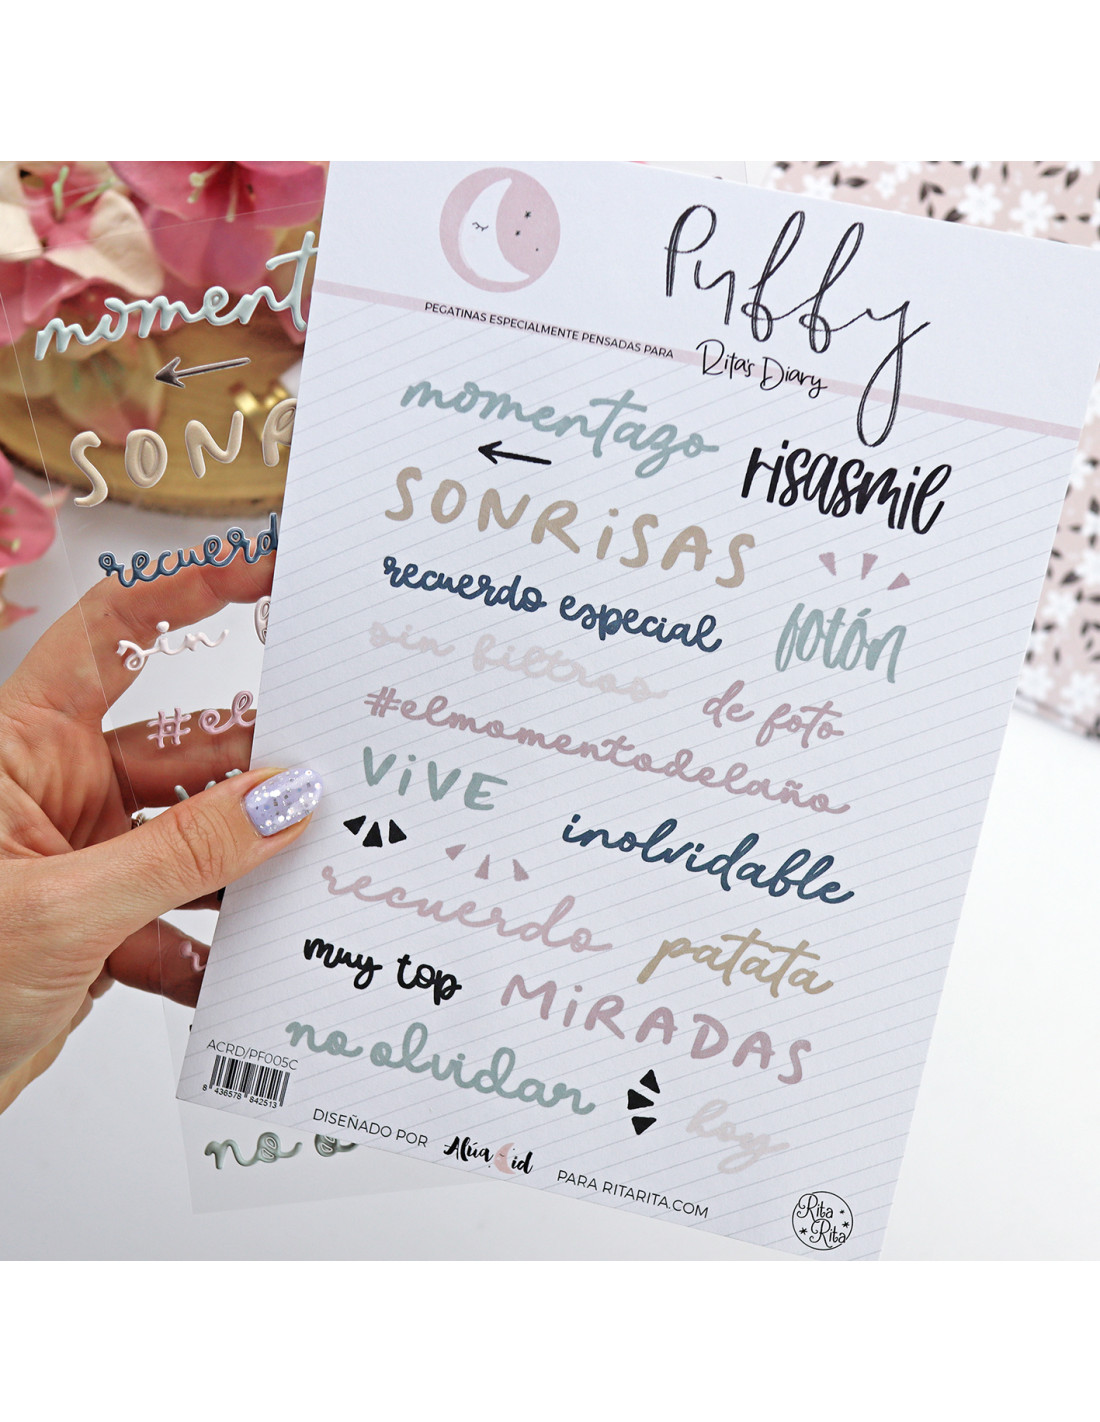 Puffy
PEGATINAS ESPECIALMENTE PENSADAS PARA
Rita's Diary
momentazo
risasmil
SONRiSAS
recuerdo especial
fotón
sin filtros
de foto
#elmomentodelaño
ViVE
inolvidable
recuerdo
patata
muy top
MiRADAS
no olvidar
hoy
ACRD/PF005C
8 436578 842513
DISEÑADO POR
Alúa Cid
PARA RITARITA.COM
Rita
Rita
moment
SONR
recuerd
sin
#el
no o